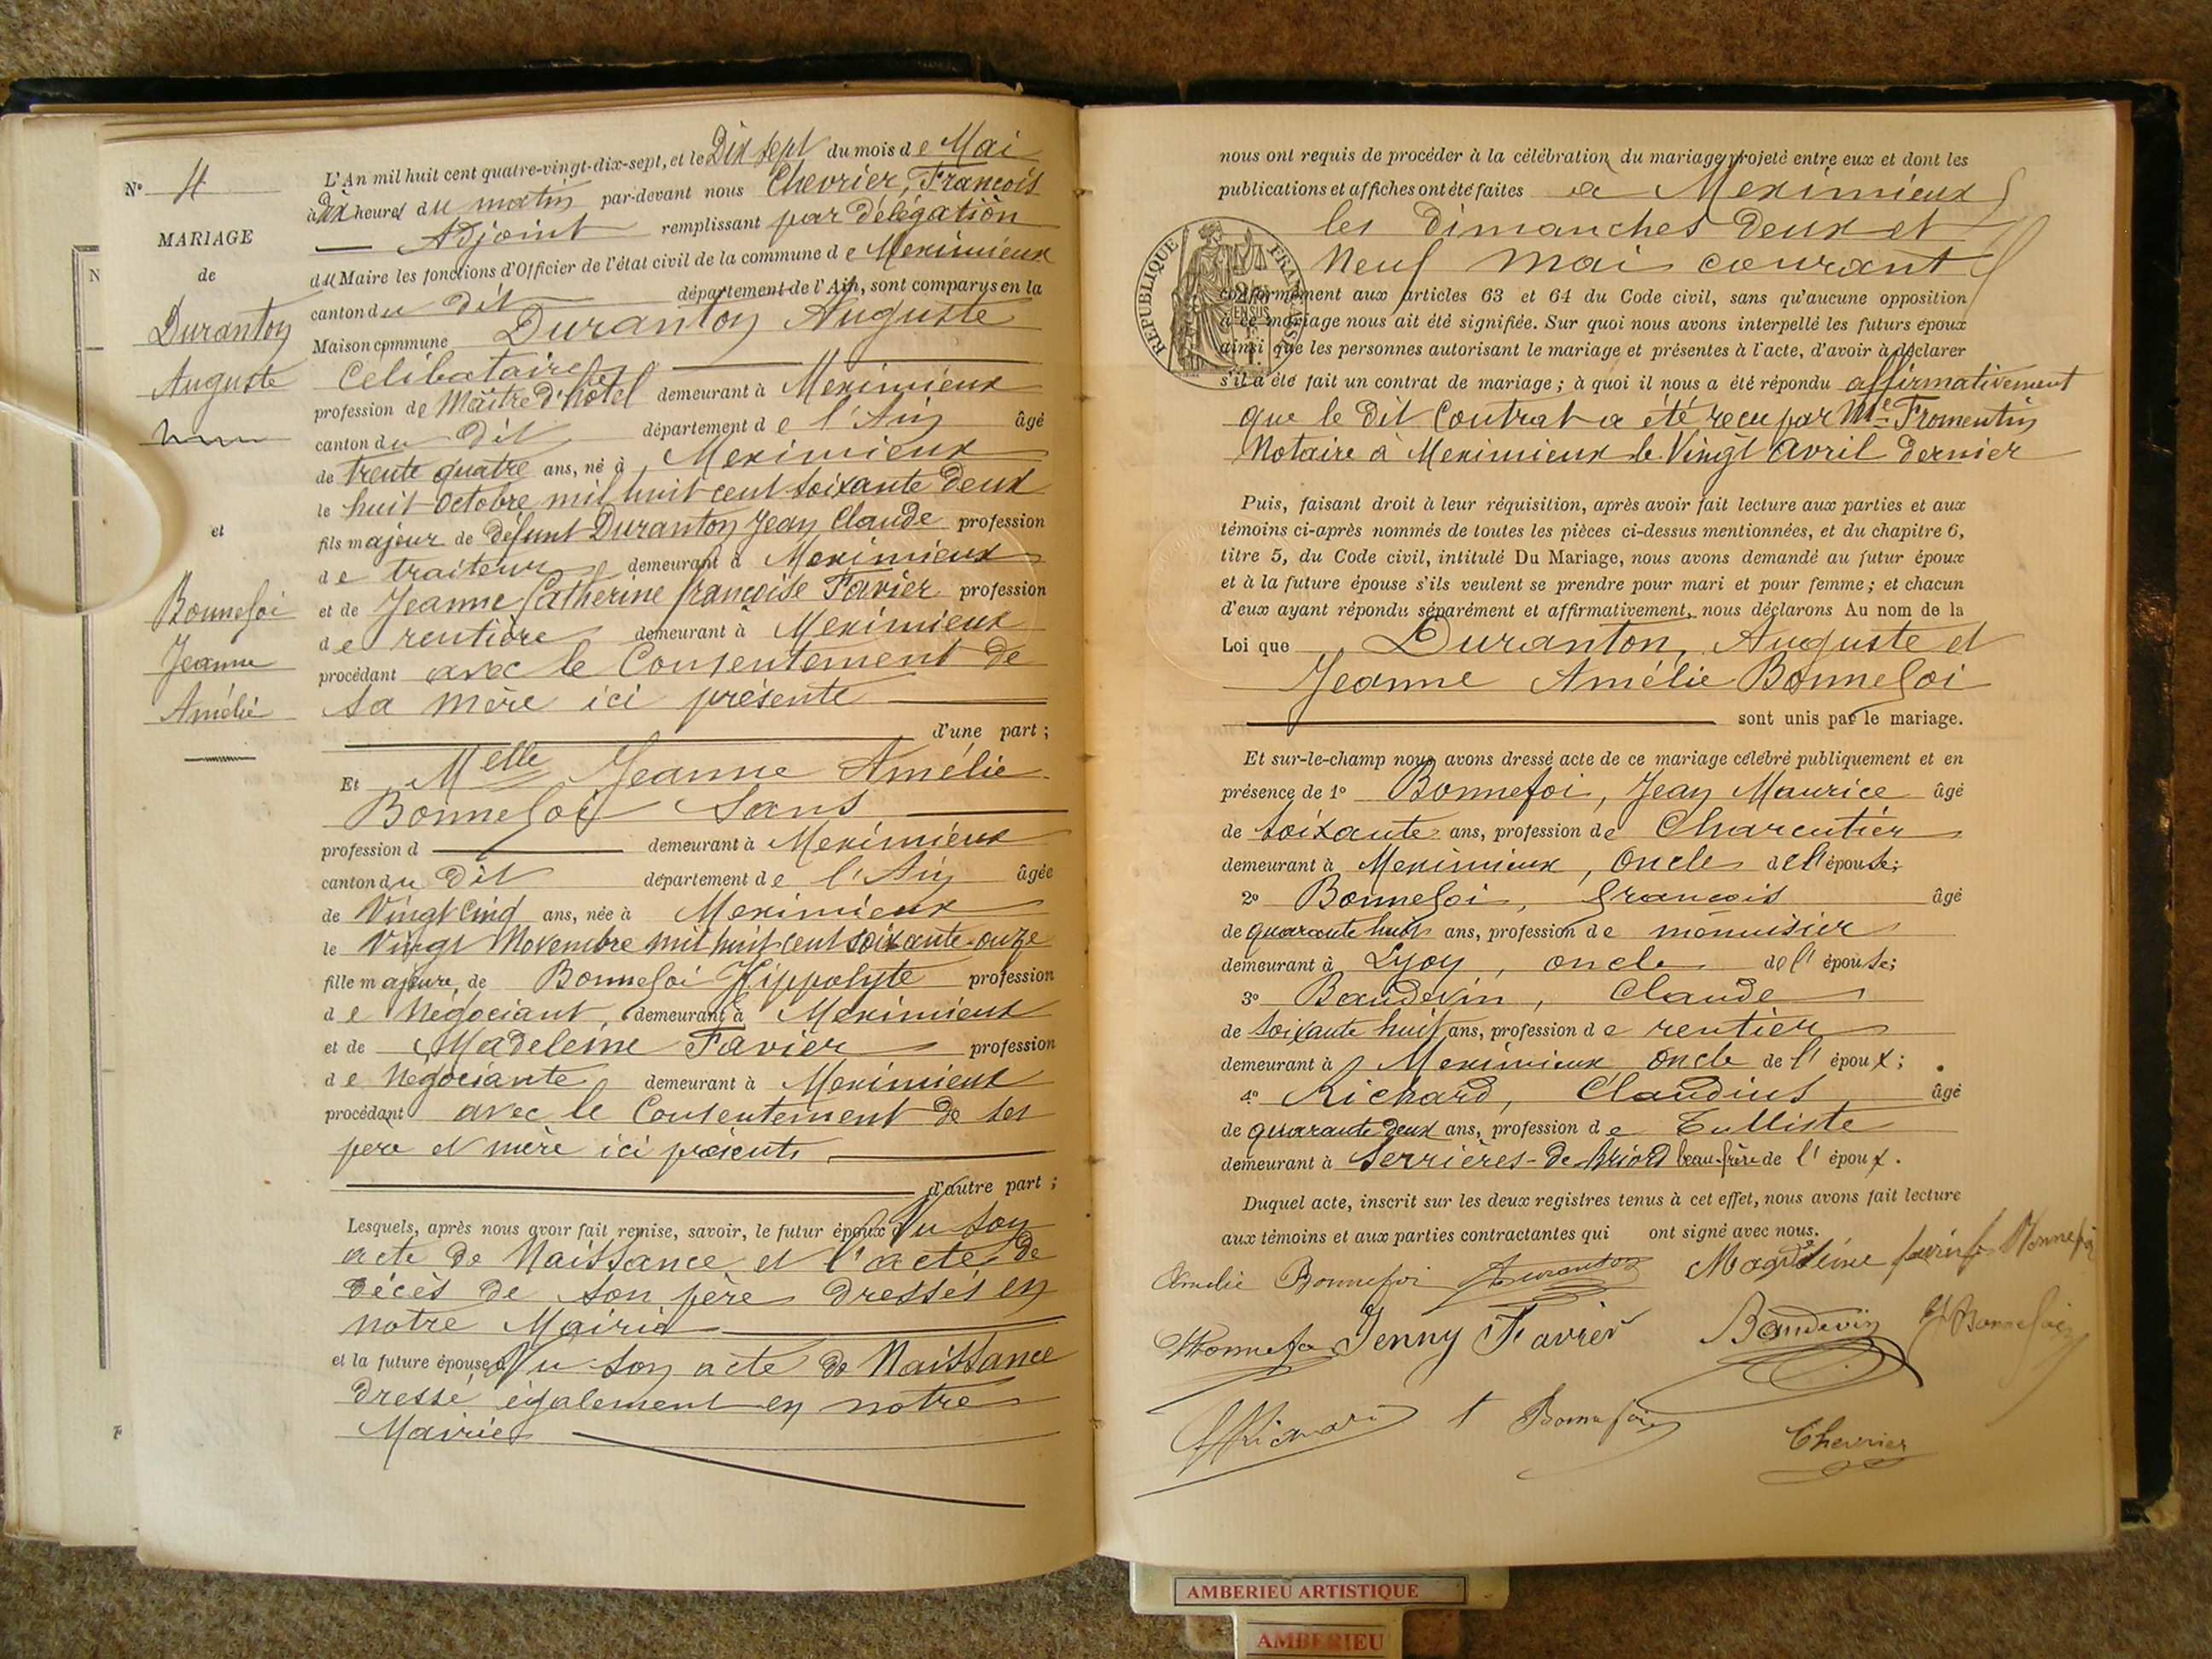 N° 4
MARIAGE
de
Duranton
Auguste
et
Bonnefoi
Jeanne
Amélie
N
L'An mil huit cent quatre-vingt-dix-sept, et le Dix sept du mois de Mai
à dix heures du matin par-devant nous Chevrier, François
Adjoint remplissant par délégation
du Maire les fonctions d'Officier de l'état civil de la commune de Meximieux
canton du dit département de l'Ain, sont comparus en la
Maison commune Duranton Auguste
Célibataire
profession de Maître d'hôtel demeurant à Meximieux
canton du dit département de l'Ain âgé
de trente quatre ans, né à Meximieux
le huit Octobre mil huit cent soixante deux
fils majeur de défunt Duranton Jean Claude profession
de traiteur demeurant à Meximieux
et de Jeanne Catherine françoise Favier profession
de rentière demeurant à Meximieux
procédant avec le Consentement de
sa mère ici présente
d'une part ;
Et Melle Jeanne Amélie
Bonnefoi Sans
profession d demeurant à Meximieux
canton du dit département de l'Ain âgée
de Vingt Cinq ans, née à Meximieux
le Vingt Novembre mil huit cent soixante-onze
fille majeure, de Bonnefoi Hippolyte profession
de Négociant, demeurant à Meximieux
et de Madeleine Favier profession
de Négociante demeurant à Meximieux
procédant avec le Consentement de ses
père et mère ici présents
d'autre part ;
Lesquels, après nous avoir fait remise, savoir, le futur époux Vu son
acte de Naissance et l'acte de
décès de son père dressés en
notre Mairie
et la future épouse Vu son acte de Naissance
dressé également en notre
Mairie
nous ont requis de procéder à la célébration du mariage projeté entre eux et dont les
publications et affiches ont été faites à Meximieux
les dimanches deux et
Neuf Mai courant
RÉPUBLIQUE FRANÇAISE
conformément aux articles 63 et 64 du Code civil, sans qu'aucune opposition
à ce mariage nous ait été signifiée. Sur quoi nous avons interpellé les futurs époux
ainsi que les personnes autorisant le mariage et présentes à l'acte, d'avoir à déclarer
s'il a été fait un contrat de mariage ; à quoi il nous a été répondu affirmativement
que le dit Contrat a été reçu par Me Fromentin
Notaire à Meximieux le Vingt avril dernier
Puis, faisant droit à leur réquisition, après avoir fait lecture aux parties et aux
témoins ci-après nommés de toutes les pièces ci-dessus mentionnées, et du chapitre 6,
titre 5, du Code civil, intitulé Du Mariage, nous avons demandé au futur époux
et à la future épouse s'ils veulent se prendre pour mari et pour femme ; et chacun
d'eux ayant répondu séparément et affirmativement, nous déclarons Au nom de la
Loi que Duranton, Auguste et
Jeanne Amélie Bonnefoi
sont unis par le mariage.
Et sur-le-champ nous avons dressé acte de ce mariage célébré publiquement et en
présence de 1° Bonnefoi, Jean Maurice âgé
de soixante ans, profession de Charcutier
demeurant à Meximieux, Oncle de l'épouse ;
2° Bonnefoi, françois âgé
de quarante huit ans, profession de menuisier
demeurant à Lyon, oncle de l'épouse ;
3° Baudevin, Claude
de soixante huit ans, profession de rentier
demeurant à Meximieux Oncle de l'époux ;
4° Richard, Claudius âgé
de quarante deux ans, profession de Tulliste
demeurant à Serrières-de-briord beau-frère de l'époux.
Duquel acte, inscrit sur les deux registres tenus à cet effet, nous avons fait lecture
aux témoins et aux parties contractantes qui ont signé avec nous.
Amélie Bonnefoi Duranton Magdeleine Bonnefoi
Jenny Favier Baudevin Bonnefoi
Bonnefoi Chevrier
AMBERIEU ARTISTIQUE
AMBERIEU